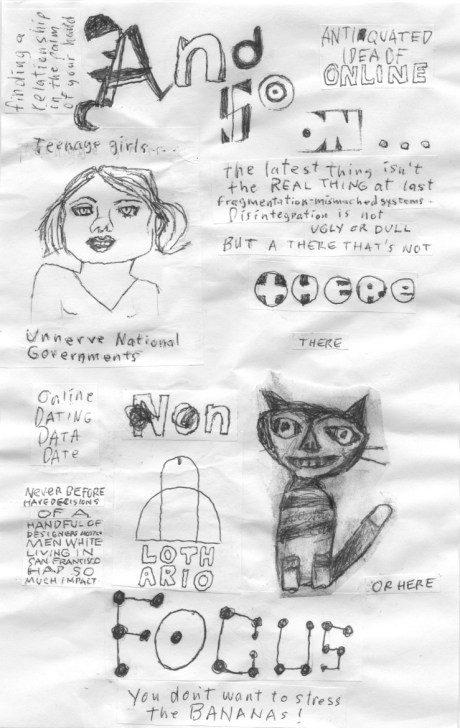 finding a
relationship
in the palm
of your hand
And
So
ON...
ANTIQUATED
IDEA OF
ONLINE
Teenage girls...
The latest thing isn't
the REAL THING at last
fragmentation-mismached systems-
Disintegration is not
UGLY OR DULL
BUT A THERE THAT'S NOT
tHERe
Unnerve National
Governments
THERE
Online
DATING
DATA
DATE
Non
NEVER BEFORE
HAVE DECISIONS
OF A
HANDFUL OF
DESIGNERS
MEN WHITE
LIVING IN
SAN FRANCISCO
HAD SO
MUCH IMPACT
LOTH
ARIO
OR HERE
FOCUS
You don't want to stress
the BANANAS!